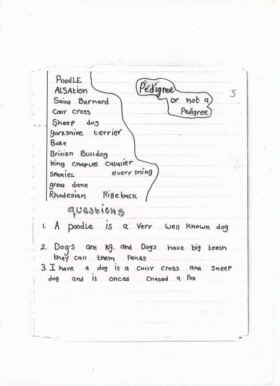 Poodle
Alsation
Sain Barnard
Cour cross
Sheep dog
yorkshire terrier
Boxe
British Bulldog
King charles cavalier
spaniel every thing
great dane
Rhodesian Rigeback
Pedigree
or not a
Pedigree
5
questions
1. A poodle is a very well known dog
2. Dogs are and Dogs have big teeth
they call them Fangs
3. I have a dog is a cross and sheep
dog and is onces chased a fox